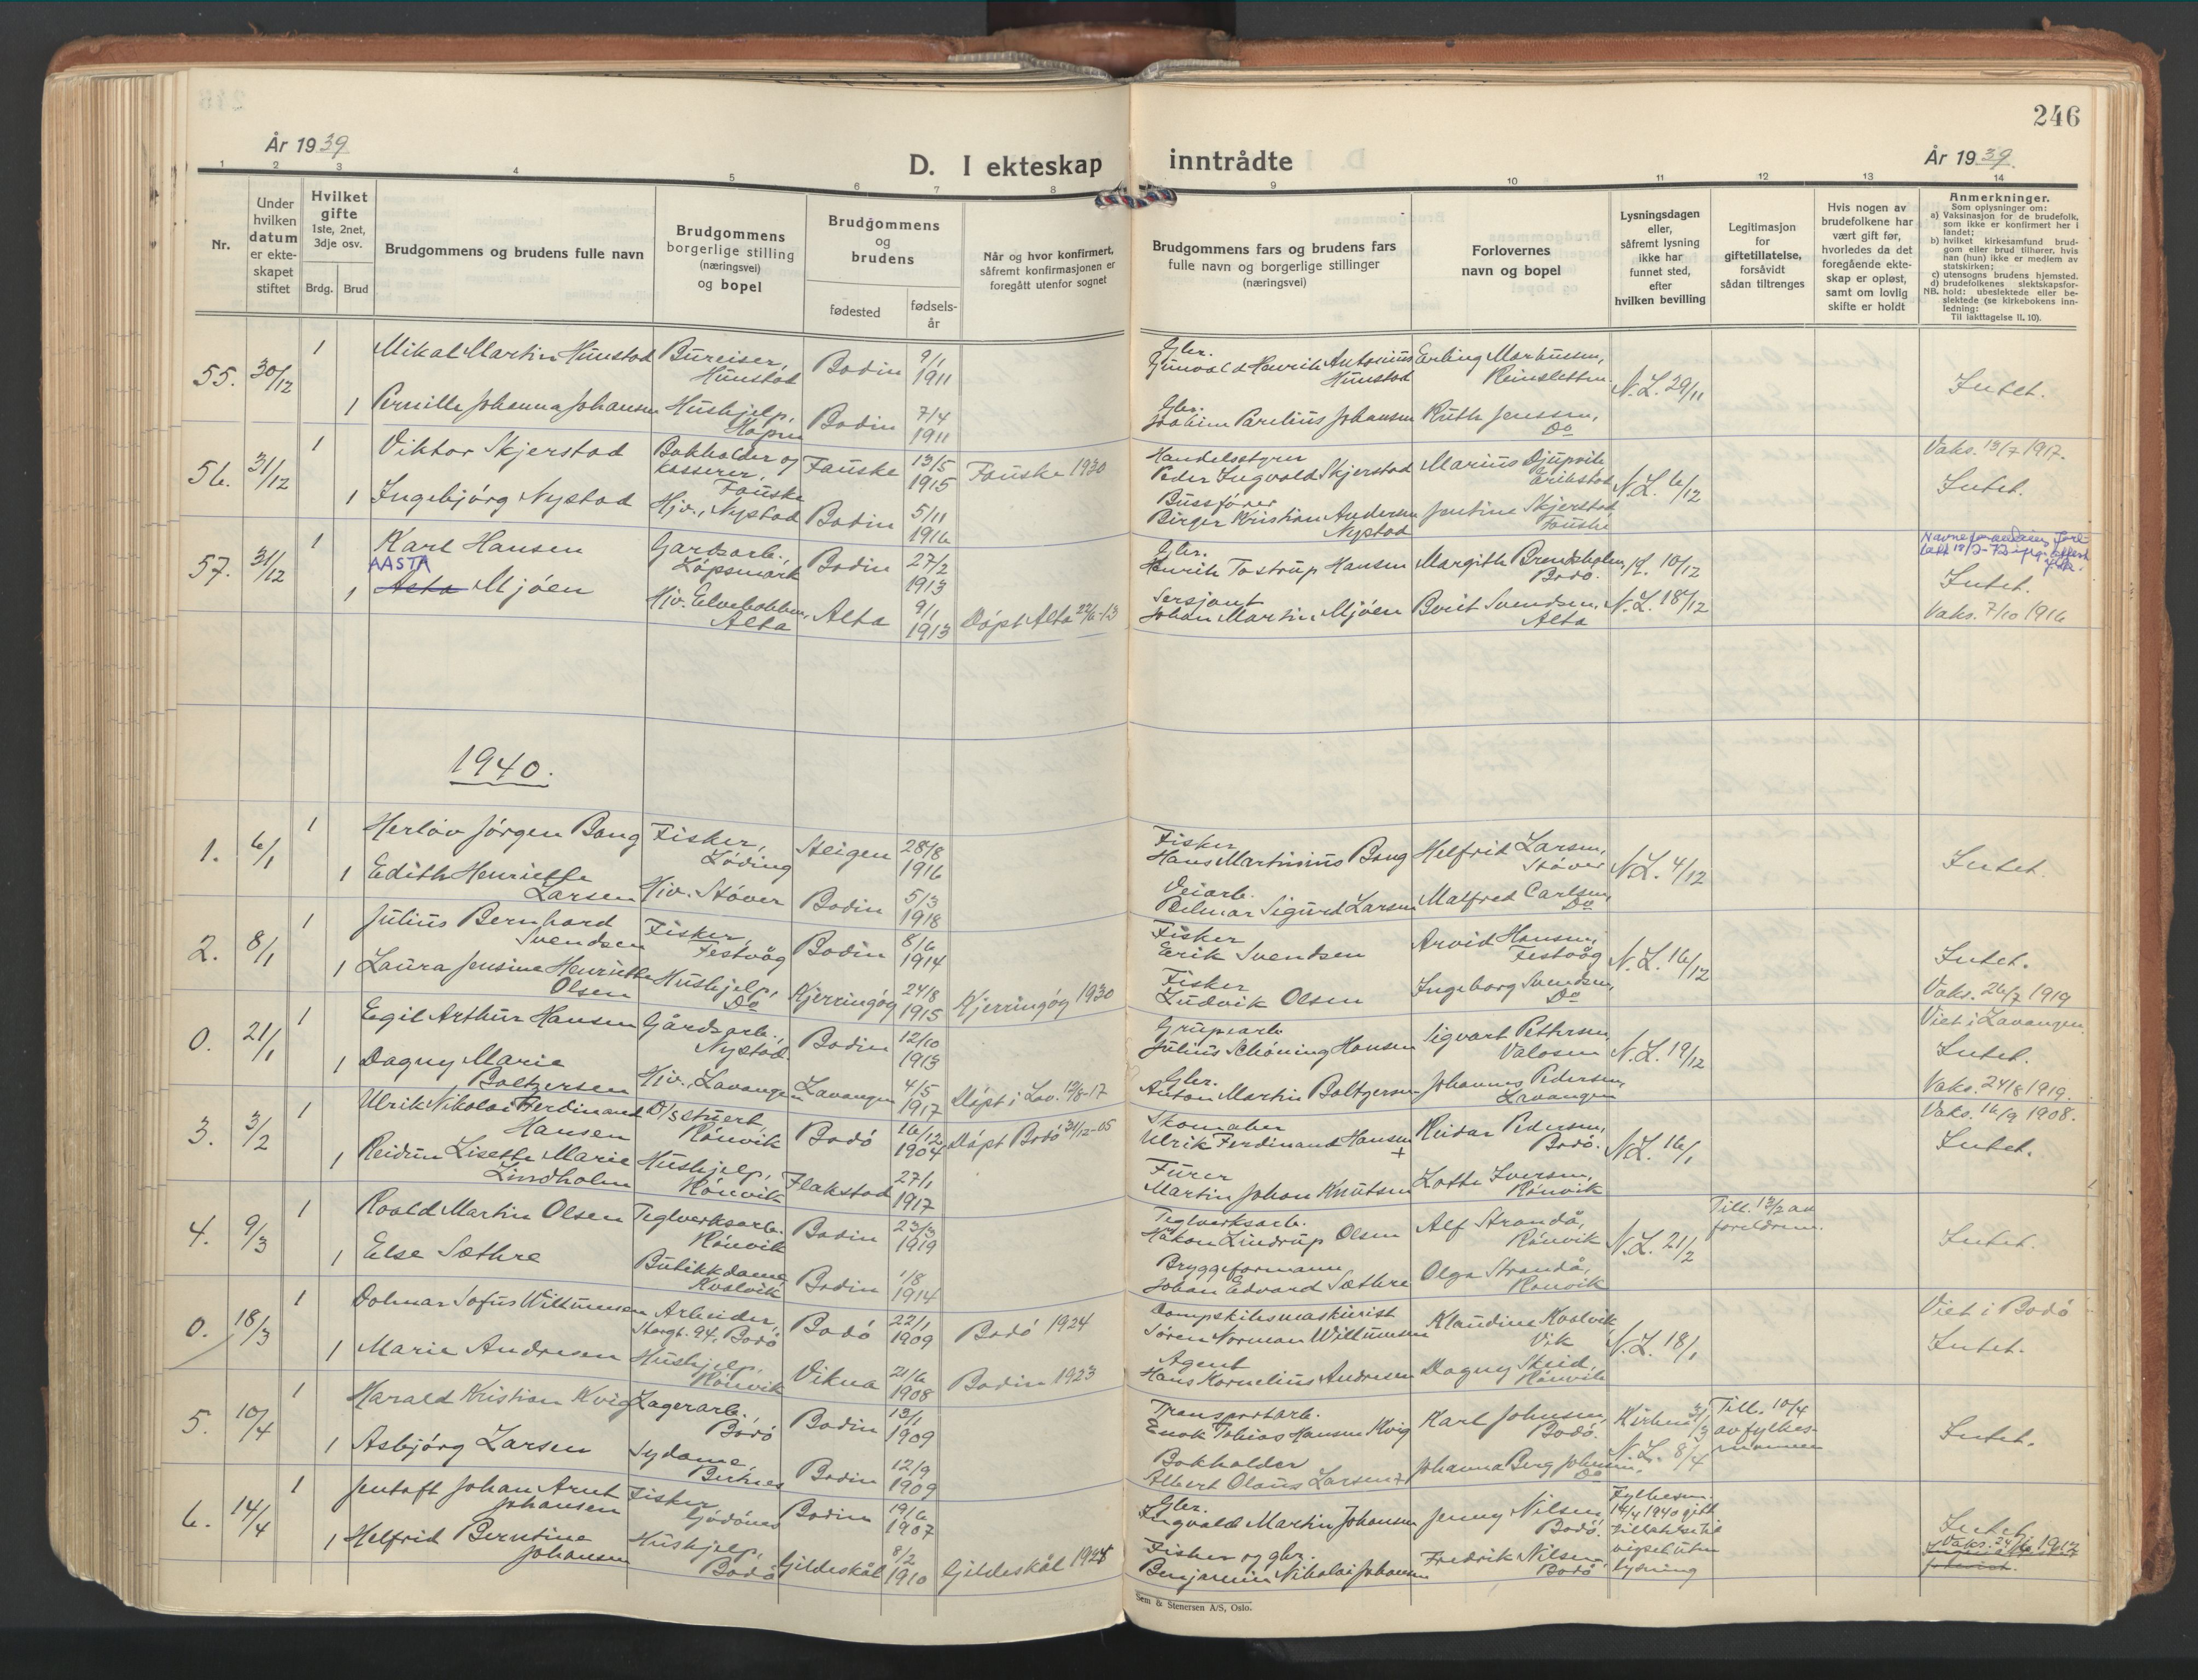 246
År 1939
D. I ekteskap inntrådte
År 1939.
1 2 3 4 5 6 7 8 9 10 11 12 13 14
Nr.
Under hvilken datum er ekte-skapet stiftet
Hvilket gifte 1ste, 2net, 3dje osv.
Brdg. Brud
Brudgommens og brudens fulle navn
Brudgommens borgerlige stilling (næringsvei) og bopel
Brudgommens og brudens
fødested
fødsels-år
Når og hvor konfirmert, såfremt konfirmasjonen er foregått utenfor sognet
Brudgommens fars og brudens fars fulle navn og borgerlige stillinger (næringsvei)
Forlovernes navn og bopel
Lysningsdagen eller, såfremt lysning ikke har funnet sted, efter hvilken bevilling
Legitimasjon for giftetillatelse, forsåvidt sådan tiltrenges
Hvis nogen av brudefolkene har vært gift før, hvorledes da det foregående ekte-skap er opløst, samt om lovlig skifte er holdt
Anmerkninger.
Som oplysninger om:
a) Vaksinasjon for de brudefolk, som ikke er konfirmert her i landet;
b) hvilket kirkesamfund brud-gom eller brud tilhører, hvis han (hun) ikke er medlem av statskirken;
c) utensogns brudens hjemsted.
d) brudefolkenes slektskapsfor-hold: ubeslektede eller be-slektede (se kirkebokens inn-ledning:
NB.
Til iakttagelse II, 10).
55. 30/12 1 Mikal Martin Hunstad Bureiser, Hunstad Bodin 9/1 1911 Gbr. Gunvald Henrik Antonius Hunstad Erling Markussen, Reinsletten N.L. 29/11 Intet.
1 Pernille Johanna Johansen Hushjelp, Hopen Bodin 7/4 1911 Gbr. Joakim Parelius Johansen Ruth Jenssen, Do
56. 31/12 1 Viktor Skjerstad Bokholder og kasserer, Fauske Fauske 13/5 1915 Fauske 1930 Handelsstyrer Peder Ingvald Skjerstad Marius Djupvik Erikstad N.L. 6/12 Vaks. 13/7 1917. Intet.
1 Ingebjörg Nystad Hjv., Nystad Bodin 5/11 1916 Bussförer Birger Kristian Andersen Nystad Jentine Skjerstad Fauske
57. 31/12 1 Karl Hansen Gardsarb., Löpsmark Bodin 27/2 1913 Gbr. Henrik Tostrup Hansen Margith Brendsholm, Bodö. K. 10/12 Intet.
AASTA
1 Asta Mjöen Hjv. Elvebakken, Alta Alta 9/1 1913 Döpt Alta 22/6-13 Sersjant Johan Martin Mjöen Borit Svendsen, Alta N.L. 18/12 Vaks. 7/10 1916
1940.
1. 6/1 1 Herlov Jörgen Bang Fisker, Löding Steigen 28/8 1916 Fisker Hans Martinius Bang Helfrid Larsen, Stöver N.L. 4/12 Intet.
1 Edith Henriette Larsen Hjv. Stöver Bodin 5/3 1918 Veiarb. Delmar Sigurd Larsen Malfred Carlsen, Do
2. 8/1 1 Julius Bernhard Svendsen Fisker, Festvåg Bodin 8/6 1914 Fisker Erik Svendsen Arvid Hansen, Festvåg N.L. 16/12 Intet.
1 Laura Jensine Henriette Olsen Hushjelp, Do Kjerringöy 24/8 1915 Kjerringöy 1930 Fisker Ludvik Olsen Ingeborg Svendsen, Do Vaks. 26/7 1919
0. 21/1 1 Egil Arthur Hansen Gårdsarb., Nystad. Bodin 12/10 1913 Grupearb Julius Schöning Hansen Sigvart Pettersen, Valosen N.L. 19/12 Viet i Lavangen. Intet.
1 Dagny Marie Boltzersen Hjv., Lavangen Lavangen 4/5 1917 Döpt i Lav. 12/8-17 Gbr. Anton Martin Boltzersen Johannes Pedersen, Lavangen Vaks. 24/8 1919.
3. 3/2 1 Ulrik Nikolai Ferdinand Hansen D/s stuert, Rönvik Bodö 16/12 1904 Döpt Bodö 31/12-05 Skomaker Ulrik Ferdinand Hansen + Reidar Pedersen, Bodö. N.L. 16/1 Vaks. 16/9 1908. Intet.
1 Reidun Lisette Marie Lindholm Hushjelp, Rönvik Flakstad 27/1 1917 Furer Martin Johan Knutsen Lotte Iversen, Rönvik
4. 9/3 1 Roald Martin Olsen Teglverksarb. Rönvik Bodin 23/3 1919 Teglverksarb. Håkon Lindrup Olsen Alf Strandå, Rönvik N.L. 21/2 Till. 13/2 av foreldrene. Intet.
1 Else Sæthre Butikkdame, Kvalvik Bodin 1/8 1914 Bryggeformann Johan Edvard Sæthre Olga Strandå, Rönvik
0. 18/3 1 Dolmar Sofus Willumsen Arbeider, Storgt. 94, Bodö Bodö 22/1 1909 Bodö 1924 Dampskibsmaskinist Sören Norman Willumsen Klaudius Kvalvik Vik N.L. 18/1 Viet i Bodö Intet.
1 Marie Andresen Hushjelp, Rönvik Vikna 21/6 1908 Bodin 1923 Agent Hans Kornelius Andresen Dagny Skeid, Rönvik
5. 10/4 1 Harald Kristian Kvig Lagerarb., Bodö Bodin 13/1 1909 Transportarb. Enok Tobias Hansen Kvig Karl Johnsen, Bodö. Kirken 31/3 Till. 10/4 av fylkes-mannen Intet.
1 Asbjörg Larsen Sydame, Bodin 12/9 1909 Bokholder Albert Olaus Larsen + Johanna Berg Johnsen, Do N.L. 8/4
6. 14/4 1 Jentoft Johan Arnt Johansen Fisker, Godönes Bodin 19/6 1907 Gbr. Ingvald Martin Johansen Jenny Nilsen, Bodö. Fylkesm. 14/4 1940 gitt tillatelse til vigsel uten lysning Intet.
1 Helfrid Berntine Johansen Hushjelp, Bodö Gildeskål 8/2 1910 Gildeskål 1924 Fisker og gbr. Benjamin Nikolai Johansen Fredrik Nilsen, Bodö Vaks. 24/6 1912
Sem & Stenersen A/S, Oslo.